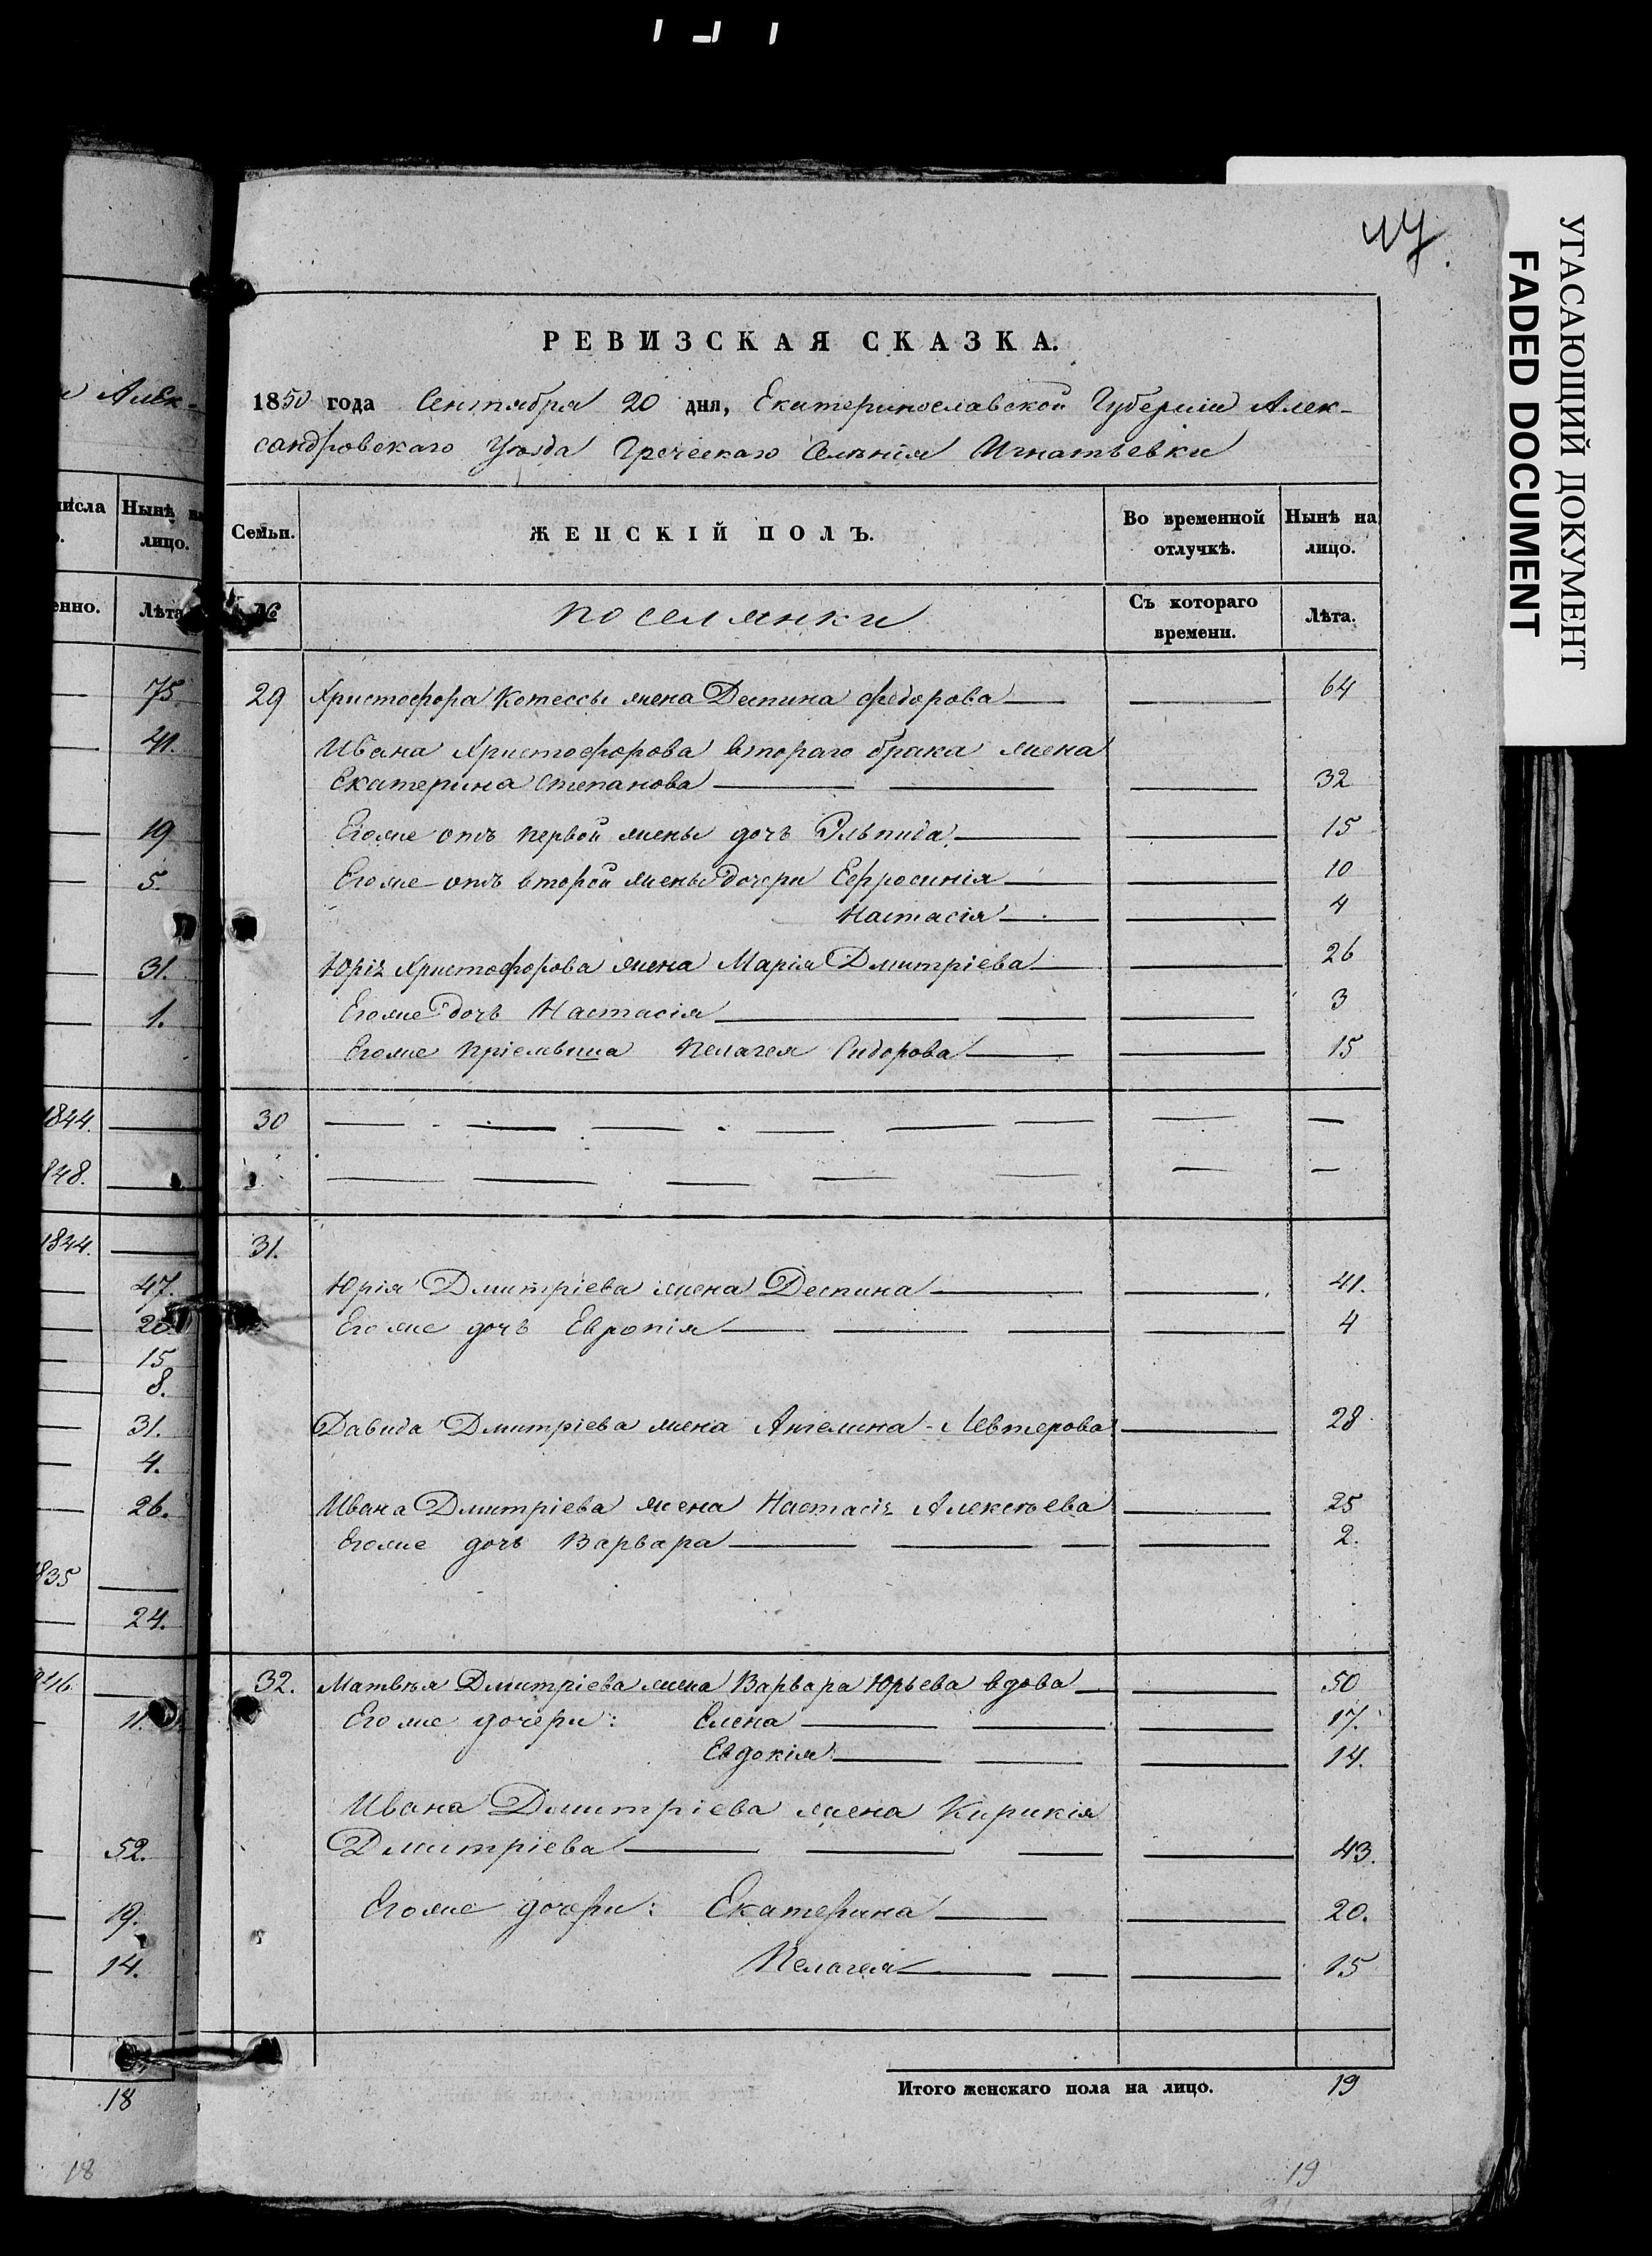 УГАСАЮЩИЙ ДОКУМЕНТ
FADED DOCUMENT
РЕВИЗСКАЯ СКАЗКА.
и Алек-
1850 года Сентября 20 дня, Екатеринославской Губерніи Алек-
сандровскаго Уѣзда Греческаго Селенія Игнатьевки
числа Нынѣ на лицо.
енно. Лѣта
Семьи. ЖЕНСКІЙ ПОЛЪ. Во временной отлучкѣ. Нынѣ на лицо.
№ поселянки Съ котораго времени. Лѣта.
75
41.
19
5.
31.
1.
1844.
1848.
1844.
47.
20
15
8.
31.
4.
26.
1835
24.
1846.
11.
52.
19.
14.
18
18
29 Христофора Котессы жена Деспина Федорова 64
Ивана Христофорова втораго брака жена
Екатерина Степанова 32
Егоже отъ первой жены дочь Эльпида 15
Егоже отъ второй жены дочери Ефросинія 10
Настасія 4
Юрія Христофорова жена Марія Дмитріева 26
Егоже дочь Настасія 3
Егоже пріемыша Пелагея Сидорова 15
30
31.
Юрія Дмитріева жена Деспина 41.
Егоже дочь Европія 4
Давида Дмитріева жена Ангелина Левтерова 28
Ивана Дмитріева жена Настасія Алексѣева 25
Егоже дочь Варвара 2.
32. Матвѣя Дмитріева жена Варвара Юрьева вдова 50
Егоже дочери: Елена 17.
Евдокія 14.
Ивана Дмитріева жена Кирикія
Дмитріева 43.
Егоже дочери: Екатерина 20.
Пелагея 15
Итого женскаго пола на лицо. 19
19